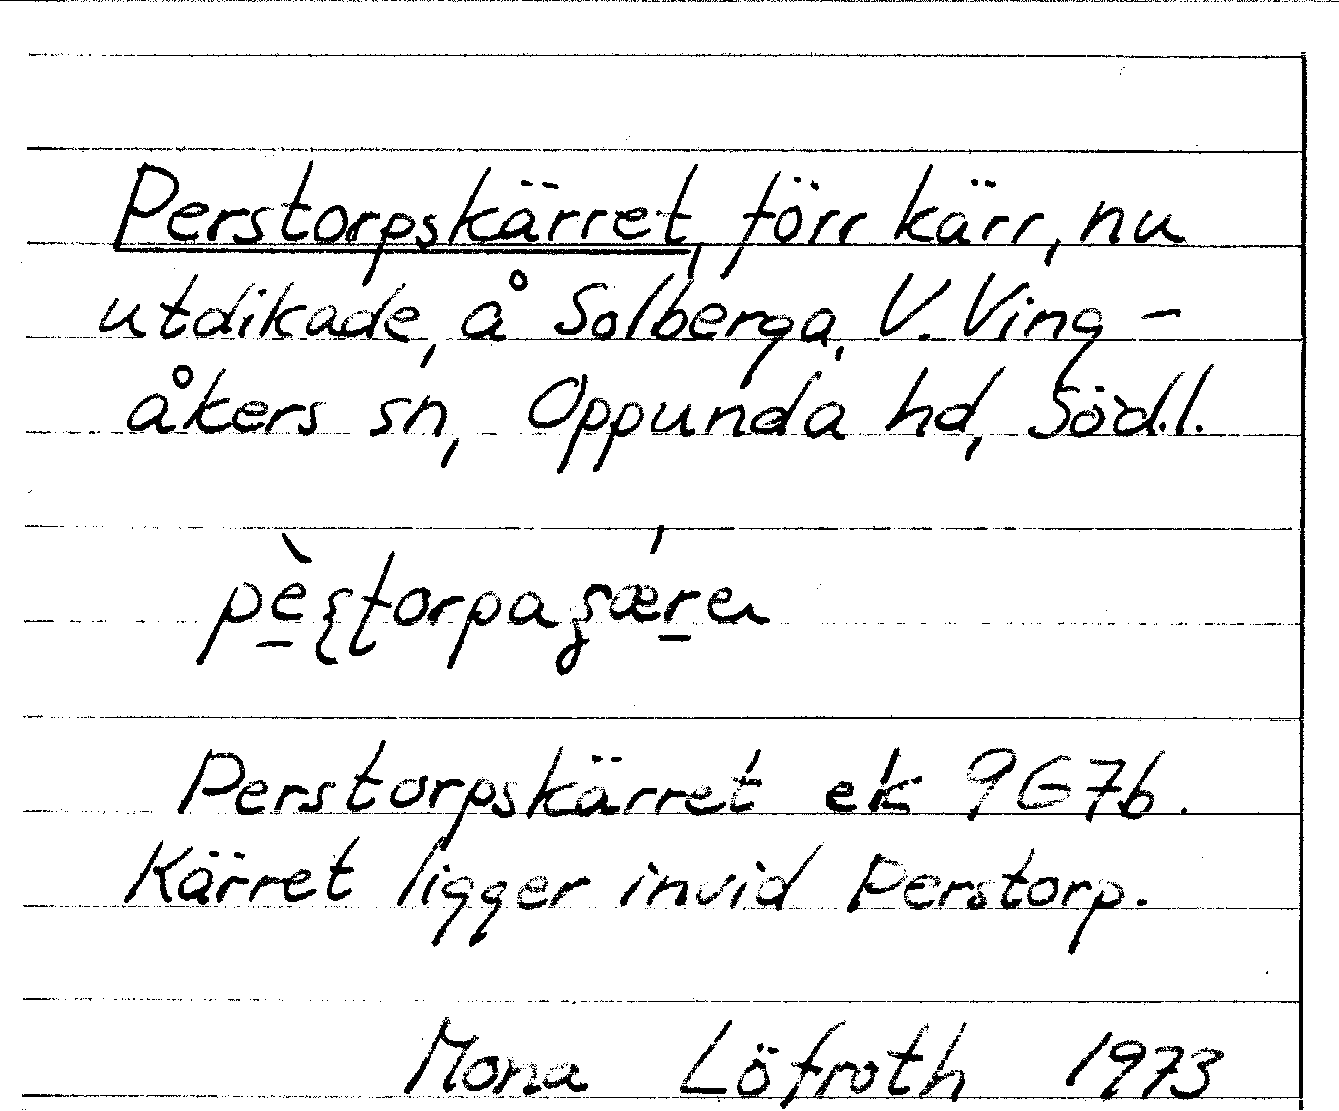 Perstorpskärret, förr kärr, nu
utdikade, å Solberga, V. Ving-
åkers sn, Oppunda hd, Södl.l.
Perstorpskärret ek 9G7b.
Kärret ligger invid Perstorp.
Mona Löfroth 1973